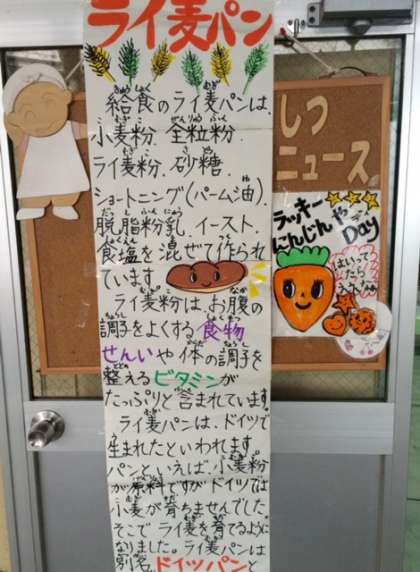 ライ麦パン
給食のライ麦パンは、
小麦粉、全粒粉、
ライ麦粉、砂糖、
ショートニング(パーム油)、
脱脂粉乳、イースト、
食塩を混ぜて作られ
ています。
ライ麦粉は、お腹の
調子をよくする食物
せんいや体の調子を
整えるビタミンが
たっぷりと含まれています。
ライ麦パンは、ドイツで
生まれたといわれます。
パンといえば、小麦粉
が原料ですがドイツでは
小麦が育ちませんでした。
そこで ライ麦を育てるように
なりました。ライ麦パンは
別名 ドイツパンと
しつ
ニュース
ラッキー
にんじん
Day
はいって
たら